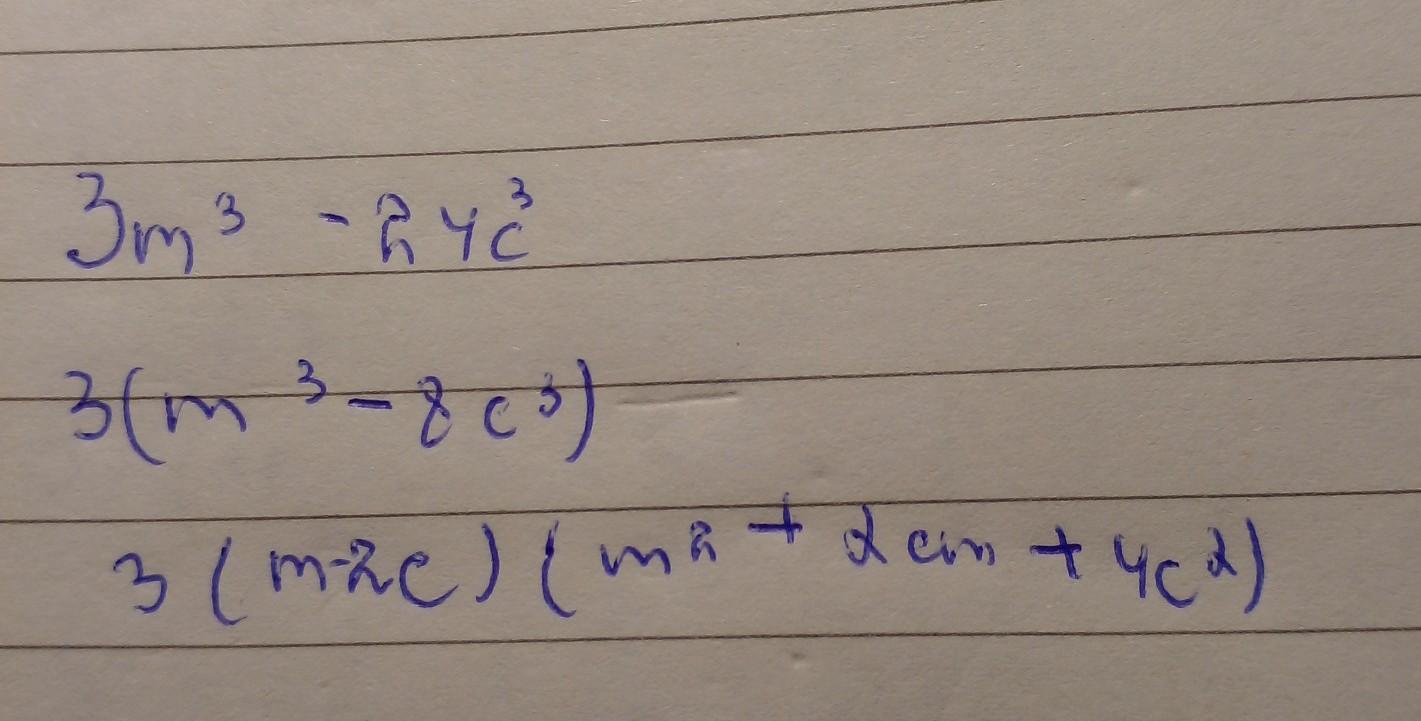 3m³ - 24c³
3(m³ - 8c³)
3(m-2c)(m² + 2cm + 4c²)